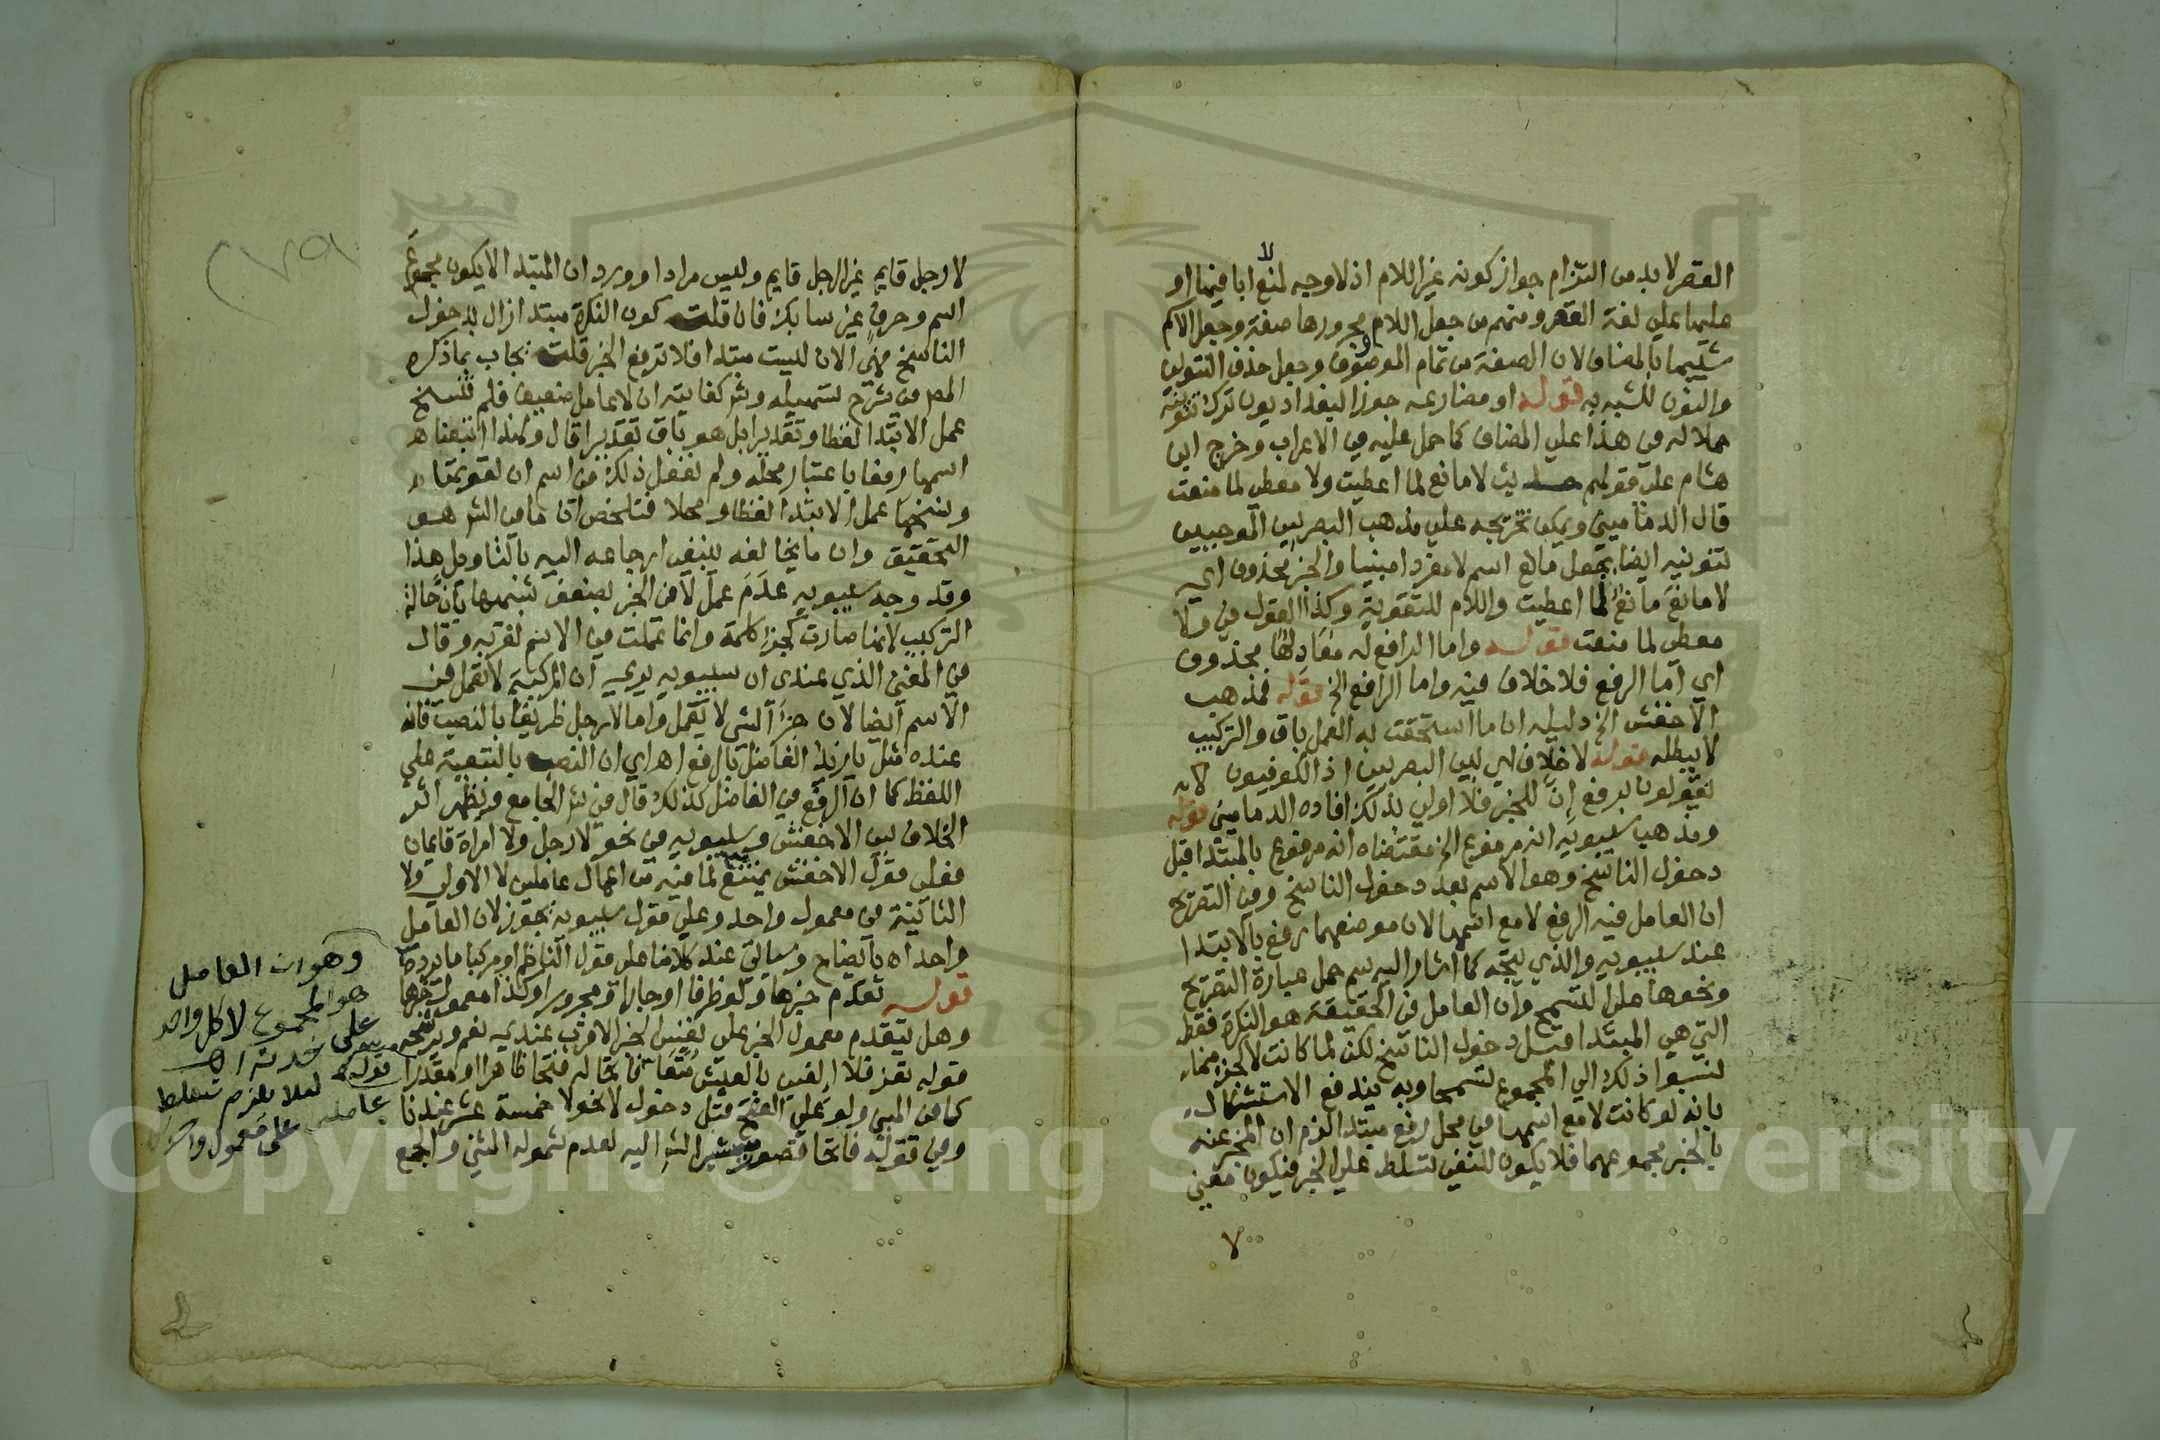 القصر لا بد من التزام جواز كونه غير اللام اذ لا وجه لمنع لا ابا فيها او
عليها على لغة القصر ومنهم من جعل اللام ومجرورها صفة وجعل الاسم
شبيها بالمضاف لان الصفة من تمام الموصوف وجعل حذف التنوين
والنون للشبه به قوله او مضارعه جوز البغداديون ترك تنوينه
حملا له في هذا على المضاف كما حمل عليه في الاعراب وخرج ابن
هشام على قولهم حديث لا مانع لما اعطيت ولا معطي لما منعت
قال الدماميني ويمكن تخريجه على مذهب البصريين الموجبين
تنوينه ايضا بجعل مانع اسم لا مفردا مبنيا والخبر محذوف اي
لا مانع مانع لما اعطيت واللام للتقوية وكذا القول في ولا
معطي لما منعت قوله واما الرافع له معادلها محذوف
اي اما الرفع فلا خلاف فيه واما الرافع الخ قوله فمذهب
الاخفش الخ دليله ان ما استحقت به العمل باق والتركيب
لا يبطله قوله لا خلاف اي بين البصريين اذ الكوفيون لا
يقولون برفع إنّ للخبر فلا اولى بذلك افاده الدماميني قوله
ومذهب سيبويه انه مرفوع الخ مقتضاه انه مرفوع بالمبتدا قبل
دخول الناسخ وهو الاسم بعد دخول الناسخ وفي التصريح
ان العامل فيه الرفع لا مع اسمها لان موضعهما رفع بالابتدا
عند سيبويه والذي يتجه كما اشار اليه سم حمل عبارة التصريح
ونحوها على التسمح وان العامل في الحقيقة هو النكرة فقط
التي هي المبتدا قبل دخول الناسخ لكن لما كانت لا كجزء منها
نسبوا ذلك الى المجموع تسمحا وبه يندفع الاستشكال
بانه لو كانت لا مع اسمها في محل رفع مبتدا لزم ان المخبر عنه
بالخبر مجموعهما فلا يكون للنفي تسلط على الخبر فيكون معنى
لا
٢٧٩
لا رجل قايم غير الرجل قايم وليس مرادا وورد ان المبتدا لا يكون مجموع
اسم وحرف غير سابك فان قلت كون النكرة مبتدا زال بدخول
الناسخ فهي الان ليست مبتدا فلا ترفع الخبر قلت يجاب بما ذكره
المص في شرح تسهيله وشرح كفايته ان لا عامل ضعيف فلم تنسخ
عمل الابتدا لفظا وتقديرا بل هو باق تقديرا قال ولهذا اتبعنا
اسمها رفعا باعتبار محله ولم نفعل ذلك في اسم ان لقوتها
ونسخها عمل الابتدا لفظا ومحلا فتلخص ان ما في الش هو
التحقيق وان ما يخالفه ينبغي ارجاعه اليه بالتاويل هذا
وقد وجه سيبويه عدم عمل لا في الخبر بضعف شبهها بان حالة
التركيب لانها صارت كجزء كلمة وانما عملت في الاسم لقربه وقال
في المغني الذي عندي ان سيبويه يرى ان المركبة لا تعمل في
الاسم ايضا لان جزء الشي لا يعمل واما لا رجل ظريفا بالنصب فانه
عنده مثل يا زيد الفاضل بالرفع اهـ اي ان النصب بالتبعية على
اللفظ كما ان الرفع في الفاضل كذلك قال في شرح الجامع ويظهر اثر
الخلاف بين الاخفش وسيبويه في نحو لا رجل ولا امراة قايمان
فعلى قول الاخفش يمتنع لما فيه من اعمال عاملين لا الاولى ولا
الثانية في معمول واحد وعلى قول سيبويه يجوز لان العامل
واحد اهـ بايضاح وسياتي عند كلامنا على قول الناظم او مركبا ما يرده
قوله تقدم خبرها ولو ظرفا او جارا ومجرورا وكذا معمول خبرها
وهل يتقدم معمول الخبر على نفس الخبر الاقرب عندي نعم ويرشحه
قوله تعز فلا إلفين بالعيش مُتِّعا قا بحاله فتحا ظاهرا او مقدرا
كما في المبني ولو على الفتح قبل دخول لا نحو لا خمسة عشر عندنا
وفي قوله فاتحا قصور يشير الش اليه لعدم شموله المثنى والجمع
وهو ان العامل
هو المجموع لا كل واحد
على حدته اهـ
قوله لئلا يلزم تسلط
عاملين على معمول واحد